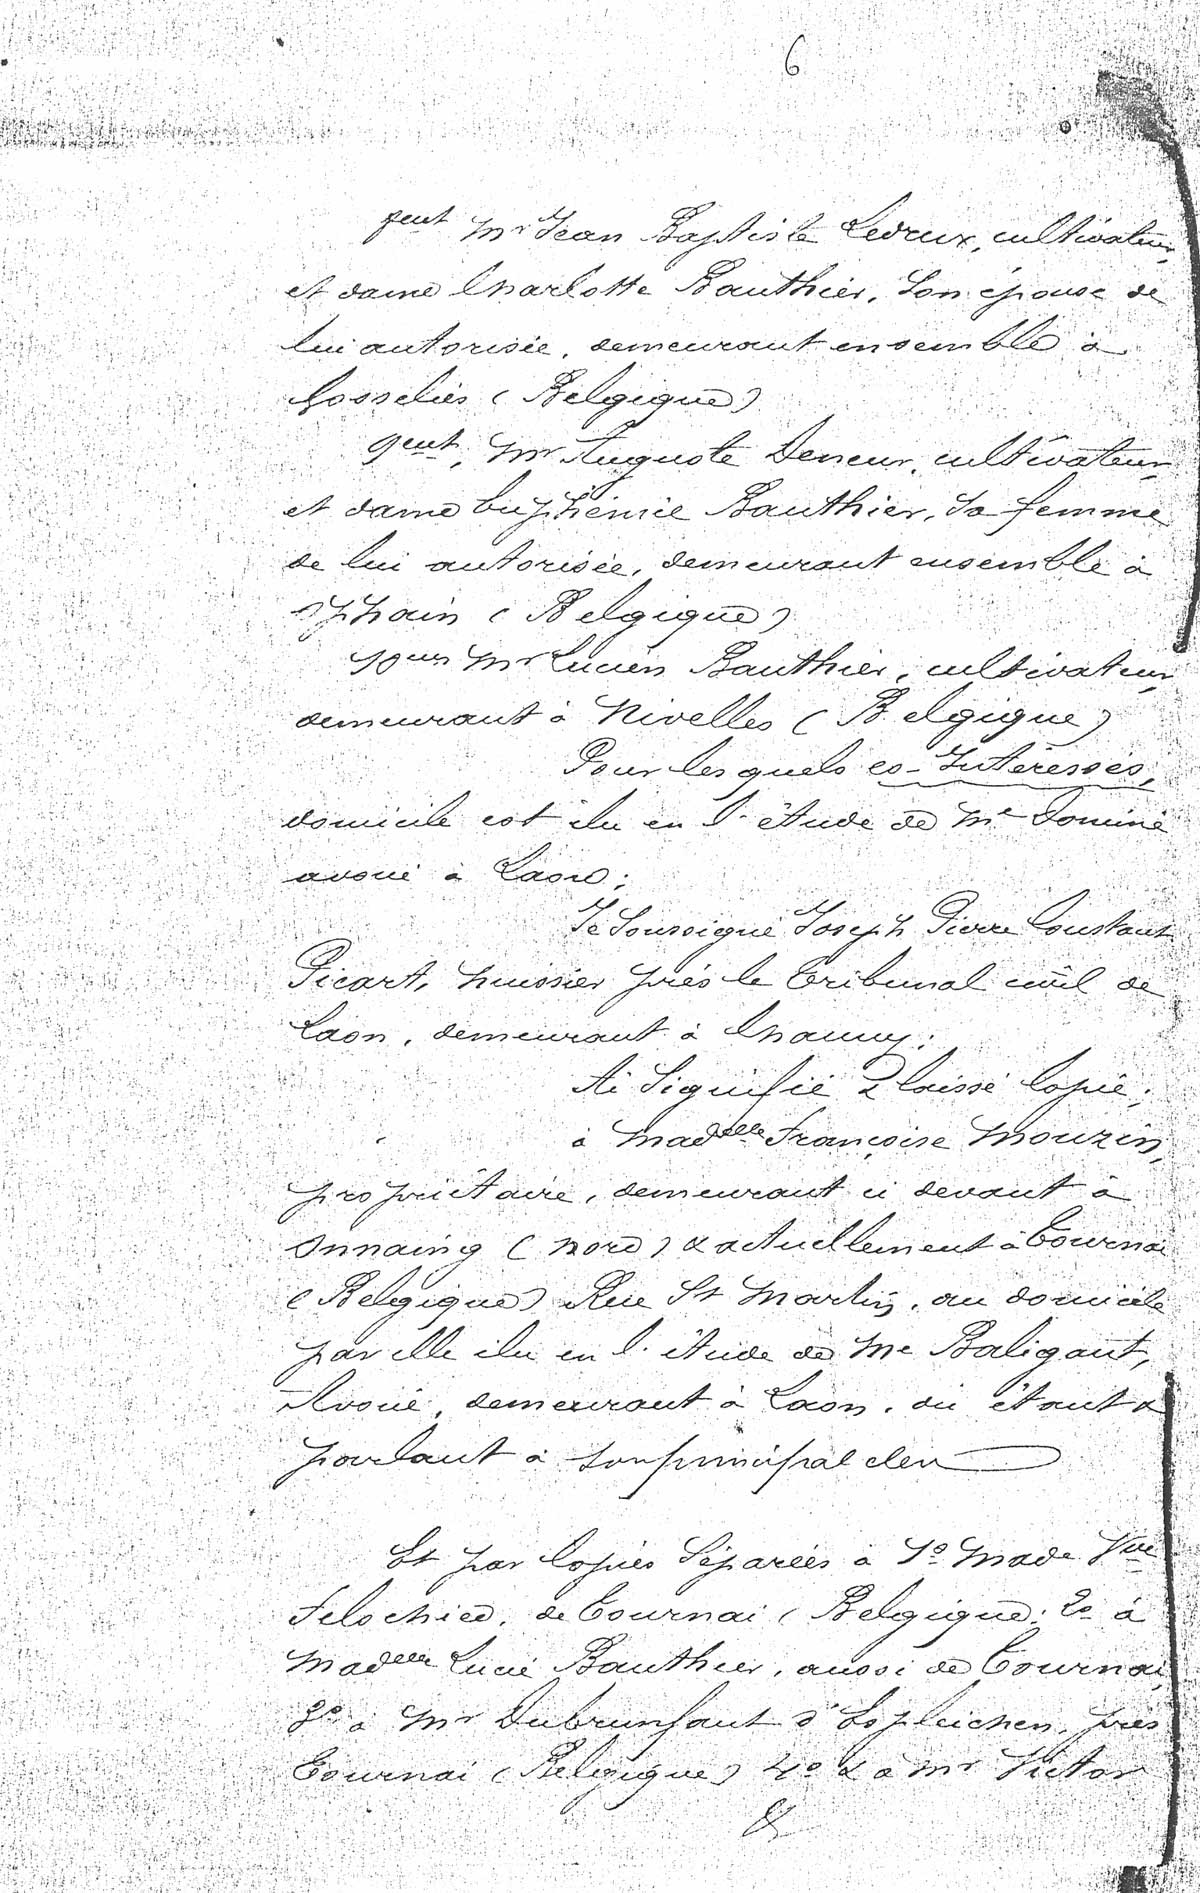 6
8ent Mr Jean Baptiste Ledrux, cultivateur,
et dame Charlotte Bauthier, son épouse de
lui autorisée, demeurant ensemble à
Gosselies (Belgique)
9ent, Mr Auguste Deneur, cultivateur,
et dame Euphémie Bauthier, sa femme
de lui autorisée, demeurant ensemble à
(Belgique)
Mr Lucien Bauthier, cultivateur,
demeurant à Nivelles (Belgique)
Pour lesquels co-Intéressés,
domicile est élu en l'étude de Me Dominé
avoué à Laon;
Je Soussigné Joseph Pierre Constant
Picart, huissier près le Tribunal civil de
Laon, demeurant à Chauny;
Ai Signifié & laissé Copie;
à Madelle Françoise Mouzin,
propriétaire, demeurant ci devant à
Onnaing (Nord) & actuellement à Tournai
(Belgique) Rue St Martin, au domicile
par elle élu en l'étude de Me Baligant,
Avoué, demeurant à Laon, où étant &
parlant à son principal clerc
Et par Copies Séparées à 1o Made Vve
Félochied, de Tournai (Belgique; 2o à
Madelle Lucie Bauthier, aussi de Tournai,
3o à Mr Dubrunfaut d'Esplechen, près
Tournai (Belgique) 4o & à Mr Victor